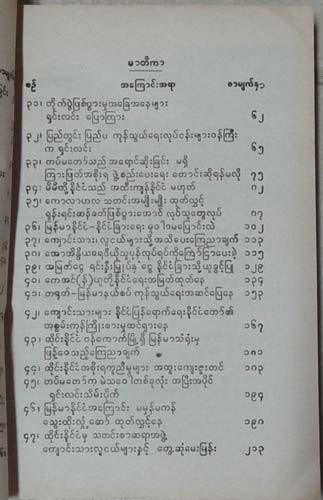 မာတိကာ
စဉ် အကြောင်းအရာ စာမျက်နှာ
၃၁၊ တိုက်ပွဲဖြစ်ပွားမှုအခြေအနေများ
ရှင်းလင်း ပြောကြား ၆၂
၃၂၊ ပြည်တွင်း ပြည်ပ ကုန်သွယ်ရေးလုပ်ငန်းများဝန်ကြီး
က ရှင်းလင်း ၆၅
၃၃၊ တပ်မတော်သည် အရောင်ဆိုးခြင်း မရှိ
ကြားဖြတ်အစိုးရ ဖွဲ့စည်းပေးရေး တောင်းဆိုရန်မလို ၇၅
၃၄၊ မိမိတို့နိုင်ငံသည် အထီးကျန်နိုင်ငံ မဟုတ် ၈၂
၃၅၊ ကောလာဟလ သတင်းအမျိုးမျိုး ထုတ်လွှင့်
ရုန်းရင်းဆန်ခတ်ဖြစ်ပွားအောင် လုပ်သူတွေ့လုပ် ၈၇
၃၆၊ မြန်မာနိုင်ငံ-နိုင်ငံခြားရေး မူဝါဒမပြောင်းလဲ ၁၀၂
၃၇၊ ကျောင်းသား၊ လူငယ်များသို့ အသိပေးကြေညာချက် ၁၁၃
၃၈၊ ၁၁၅
၃၉၊ အမြတ်ငွေ ရင်းနှီးမြှုပ်နှံငွေ နိုင်ငံခြားသို့ယူခွင့်ပြု ၁၂၉
၄၀၊ ကေအင်(န်)ယူတို့နိုင်ငံရေးအမြတ်ထုတ်နေ ၁၃၄
၄၁၊ တရုတ်-မြန်မာနယ်စပ် ကုန်သွယ်ရေးအဆင်ပြေနေ ၁၅၃
၄၂၊ ကျောင်းသားများ နိုင်ငံပြန်ရောက်ရေးနိုင်ငံတော်၏
အစွမ်းကုန်ကြိုးစားမှုဆင်ရှားနေ ၁၆၇
၄၃၊ ထိုင်းနိုင်ငံ ဗန်ကောက်မြို့ရှိ မြန်မာသံရုံးမှ
ဖြန့်ဝေသည့်ကြေညာချက် ၁၈၁
၄၄၊ ထိုင်းနိုင်ငံအစိုးရကူညီမှုများ အထူးကျေးဇူးတင် ၁၈၃
၄၅၊ တပ်မတော်က မဲသဝေါတစ်ခုလုံး အပြီးအပိုင်
ရှင်းလင်းသိမ်းပိုက် ၁၉၄
၄၆၊ မြန်မာနိုင်ငံအကြောင်း မမှန်မကန်
သွေးထိုးလှုံ့ဆော် ထုတ်လွှင့်နေ ၁၉၈
၄၇၊ ထိုင်းနိုင်ငံမှ သတင်းစာဆရာအဖွဲ့
ကျောင်းသားလူငယ်များနှင့် တွေ့ဆုံမေးမြန်း ၂၁၃